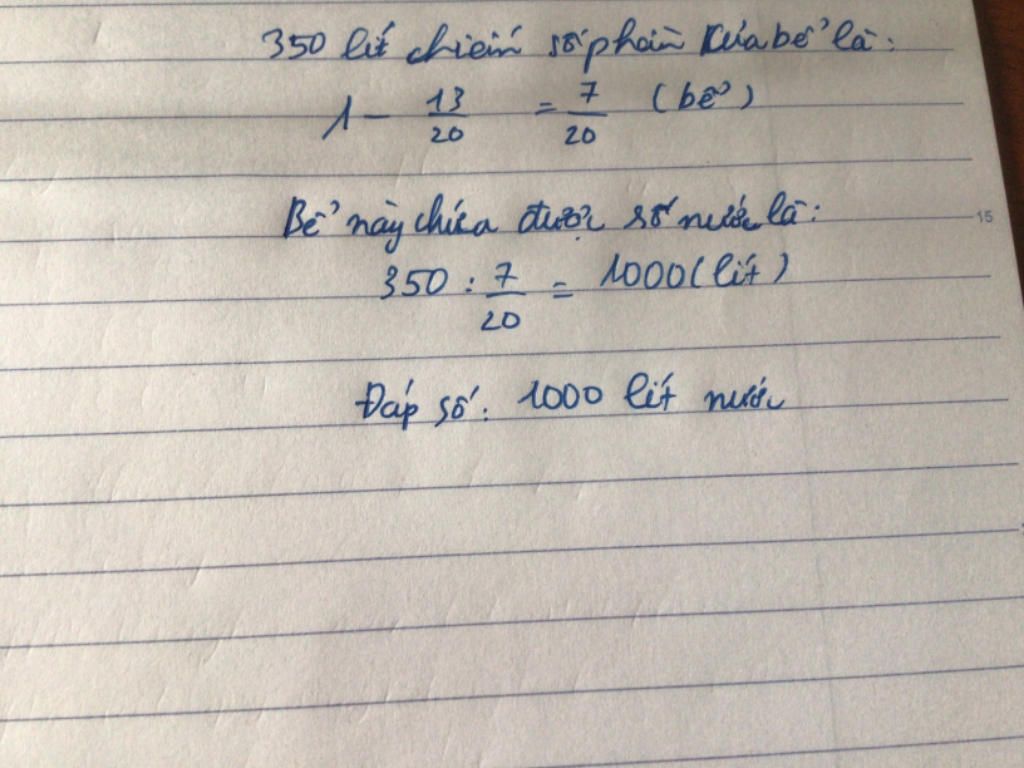 350 lít chiếm số phần của bể là:
1 - 13/20 = 7/20 (bể)
Bể này chứa được số nước là:
15
350 : 7/20 = 1000 (lít)
Đáp số: 1000 lít nước